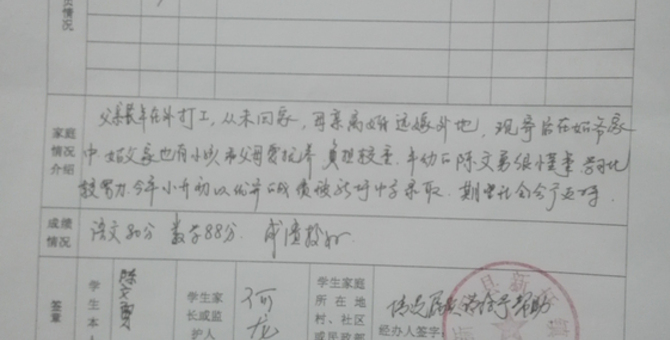 情况
家庭情况介绍
父亲长年在外打工，从未回家，母亲离婚远嫁外地，现寄居在姑爷家
中 姑父家也有小孩和父母要抚养 负担较重．年幼的陈文勇很懂事 学习比
较努力．今年小升初以优异的成绩被 中学录取．期望社会给予
成绩情况
语文80分 数学88分．成绩较好
签章
学生本人
陈文勇
学生家长或监护人
何龙
学生家庭所在地村、社区或民政部
情况属实 请给予帮助
经办人签字
县新